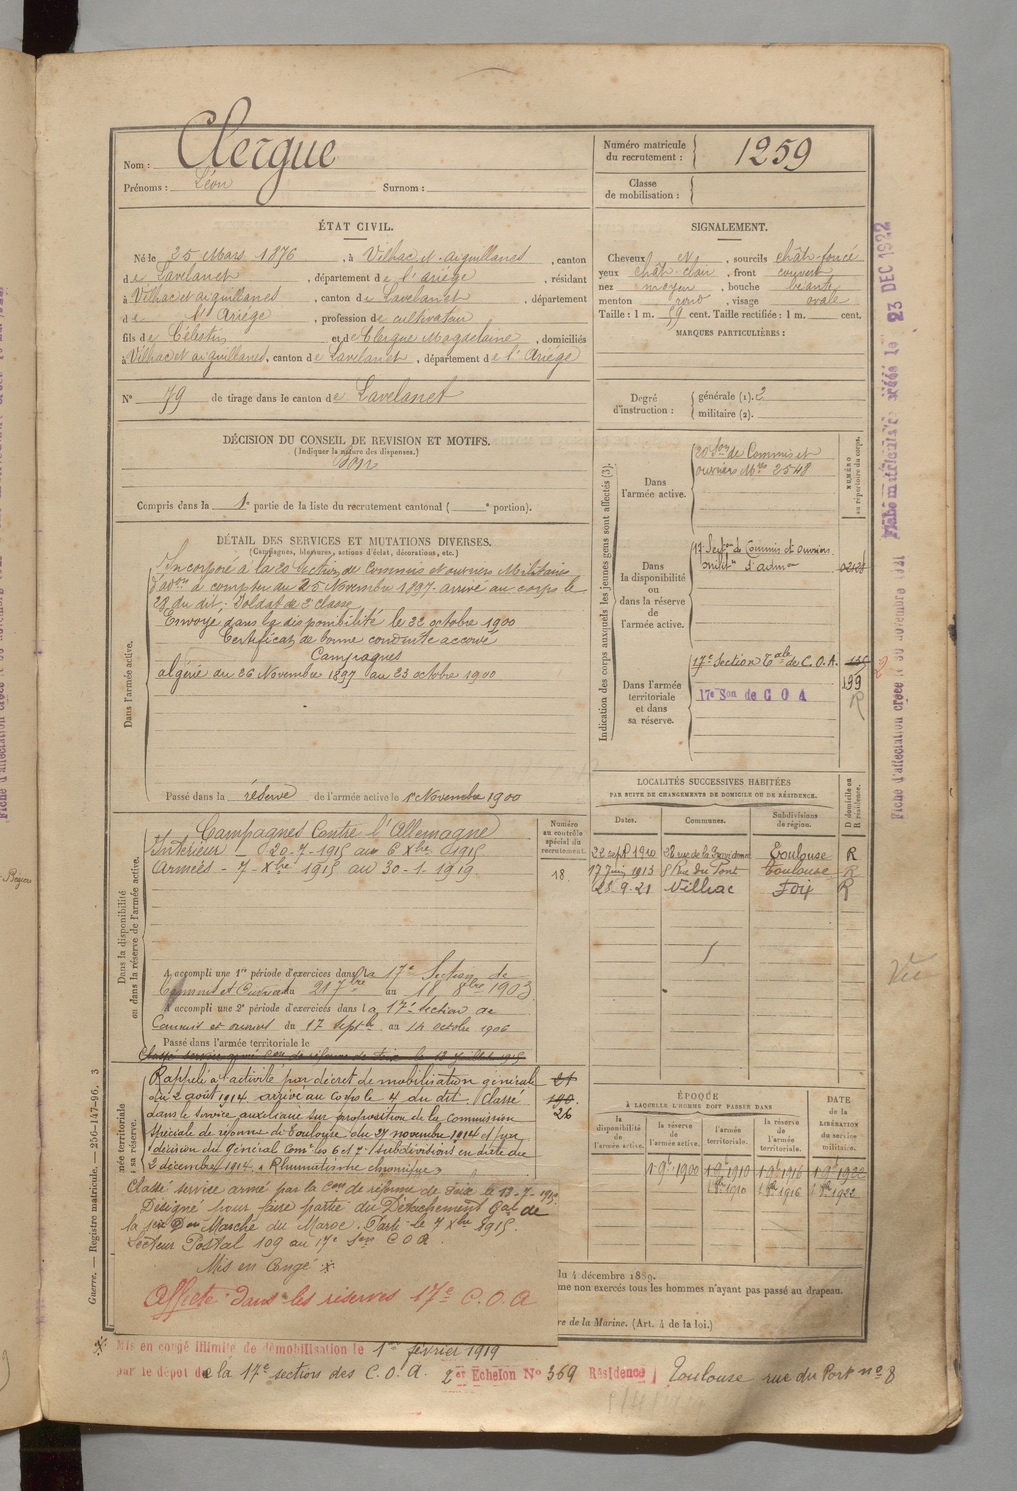 Nom : Clergue
Prénoms : Léon Surnom :
Numéro matricule du recrutement : 1259
Classe de mobilisation :
ÉTAT CIVIL.
Né le 25 Mars 1876, à Vilhac et aiguillanes, canton
de Lavelanet, département de l'ariége, résidant
à Vilhac et aiguillanes, canton de Lavelanet, département
de l'Ariége, profession de cultivateur
fils de Célestin et de Clergue Magdelaine, domiciliés
à Vilhac et aiguillanes, canton de Lavelanet, département de l'Ariége
N° 79 de tirage dans le canton de Lavelanet
SIGNALEMENT.
Cheveux N, sourcils chât-foncé
yeux chât-clair, front couvert
nez moyen, bouche béante
menton rond, visage ovale
Taille : 1 m. 59 cent. Taille rectifiée : 1 m. cent.
MARQUES PARTICULIÈRES :
Degré d'instruction : générale (1). 2
militaire (2).
DÉCISION DU CONSEIL DE REVISION ET MOTIFS.
(Indiquer la nature des dispenses.)
Bon
Compris dans la 1e partie de la liste du recrutement cantonal ( e portion).
DÉTAIL DES SERVICES ET MUTATIONS DIVERSES.
(Campagnes, blessures, actions d'éclat, décorations, etc.)
Dans l'armée active.
Incorporé à la 20 Section de Commis et ouvriers Militaires
d'adon à compter du 25 Novembre 1897. arrivé au corps le
28 du dit, Soldat de 2e classe
Envoyé dans la disponibilité le 22 octobre 1900
Certificat de bonne conduite accordé
Campagnes
algérie du 26 Novembre 1897 au 23 octobre 1900
Passé dans la réserve de l'armée active le 1er Novembre 1900
Indication des corps auxquels les jeunes gens sont affectés (3).
NUMÉRO au répertoire du corps.
Dans l'armée active.
20 Son de Commis et
ouvriers Mres 2548
Dans la disponibilité ou dans la réserve de l'armée active.
17 Secton de Commis et ouvriers
milit. d'admon
Dans l'armée territoriale et dans sa réserve.
17e Section Tale de C. O. A. 135
199
R
2
17e Son de C O A
LOCALITÉS SUCCESSIVES HABITÉES
PAR SUITE DE CHANGEMENTS DE DOMICILE OU DE RÉSIDENCE.
Dates. Communes. Subdivisions de région. D domicile ou R résidence.
22 sept 1910 rue de la Providence Toulouse R
17 Juin 1913 8 Rue du Pont Toulouse R
28.9.21 Vilhac Foix R
Dans la disponibilité ou dans la réserve de l'armée active.
Numéro au contrôle spécial du recrutement.
18
Campagnes Contre l'Allemagne
Intérieur – 20-7-1915 au 6 Xbre 1915
Armées – 7-Xbre 1915 au 30-1-1919
A accompli une 1re période d'exercices dans la 17e Section de
Commis et Ouvriers du 21 7bre au 18 8bre 1903
A accompli une 2e période d'exercices dans la 17e Section de
Commis et ouvriers du 17 Septbre au 14 octobre 1906
Passé dans l'armée territoriale le
Classé service armé Con de réforme de Foix le 13 Juillet 1915
mée territoriale
sa réserve.
Rappelé à l'activité par décret de mobilisation générale
du 2 août 1914 arrivé au Corps le 4 du dit. Classé
dans le Service auxiliaire sur proposition de la commission
spéciale de réforme de Toulouse du 27 novembre 1914 et par
décision du Général Comt les 6 et 7 subdivisions en date du
2 décembre 1914, « Rhumatisme chronique »
21
190.
26
Classé service armé par la Con de réforme de Foix le 13-7-1915
Désigné pour faire partie du Détachement Gal de
Marche du Maroc. Parti le 7 Xbre 1915.
Secteur Postal 109 au 17e Son C O A.
Mis en Congé *
Affecté dans les réserves 17e C. O. A
ÉPOQUE
À LAQUELLE L'HOMME DOIT PASSER DANS
la disponibilité de l'armée active. la réserve de l'armée active. l'armée territoriale. la réserve de l'armée territoriale.
DATE de la LIBÉRATION du service militaire.
1 9e 1900 1 9e 1910 1 9e 1916 1 9e 1922
1 8bre 1910 1 8bre 1916 1 8bre 1922
du 4 décembre 1889.
me non exercés tous les hommes n'ayant pas passé au drapeau.
re de la Marine. (Art. 4 de la loi.)
* Mis en congé illimité de démobilisation le 1er février 1919
par le dépot de la 17e section des C. O. A. 2er Echelon No 369 Résidence Toulouse rue du Port no 8
Guerre. — Registre matricule. — 256-147-96. 3
Fiche d'affectation créée le 30 novembre 1921
Fiche matriculaire créée le 23 DEC 1922
Vu